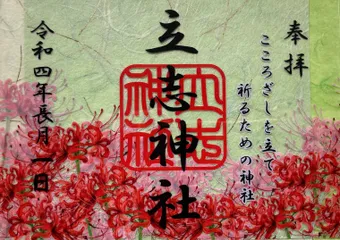 奉拝
こころざしを立て、
祈るための神社
立志神社
令和四年長月一日